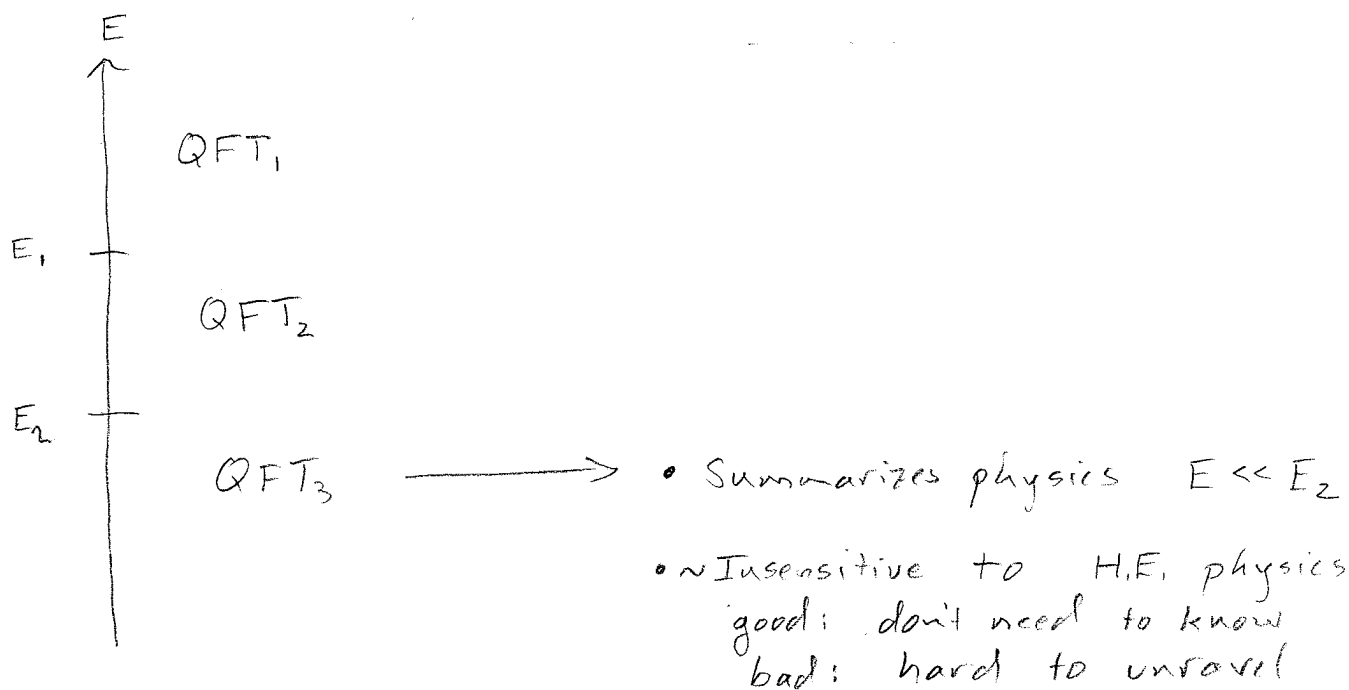 E
QFT₁
E₁
QFT₂
E₂
QFT₃ → • Summarizes physics E << E₂
• ~Insensitive to H.E. physics
good: don't need to know
bad: hard to unravel